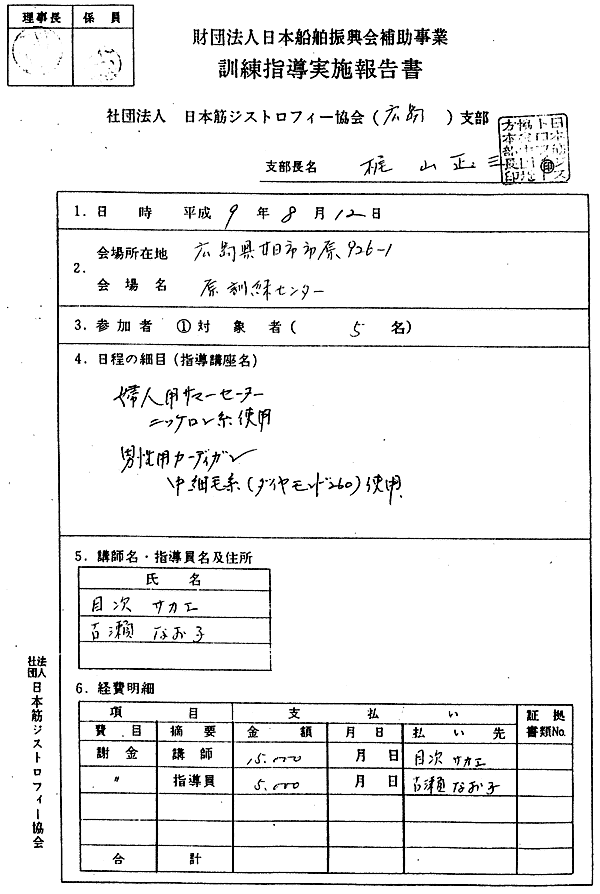 理事長 係員
財団法人日本船舶振興会補助事業
訓練指導実施報告書
社団法人 日本筋ジストロフィー協会(広島)支部
支部長名 梶山正三
1. 日時 平成9年8月12日
2. 会場所在地 広島県廿日市市原926-1
会場名 原訓練センター
3. 参加者 ①対象者(5名)
4. 日程の細目(指導講座名)
婦人用サマーセーター
ニッケロン糸使用
男性用カーディガン
中細毛糸(ダイヤモンド260)使用
5. 講師名・指導員名及住所
氏名
目次 サカエ
吉瀬 なお子
6. 経費明細
項目 支払い 証拠書類No.
費目 摘要 金額 月日 払い先
謝金 講師 15.000 月日 目次 サカエ
〃 指導員 5.000 月日 吉瀬 なお子
合計
社団法人 日本筋ジストロフィー協会